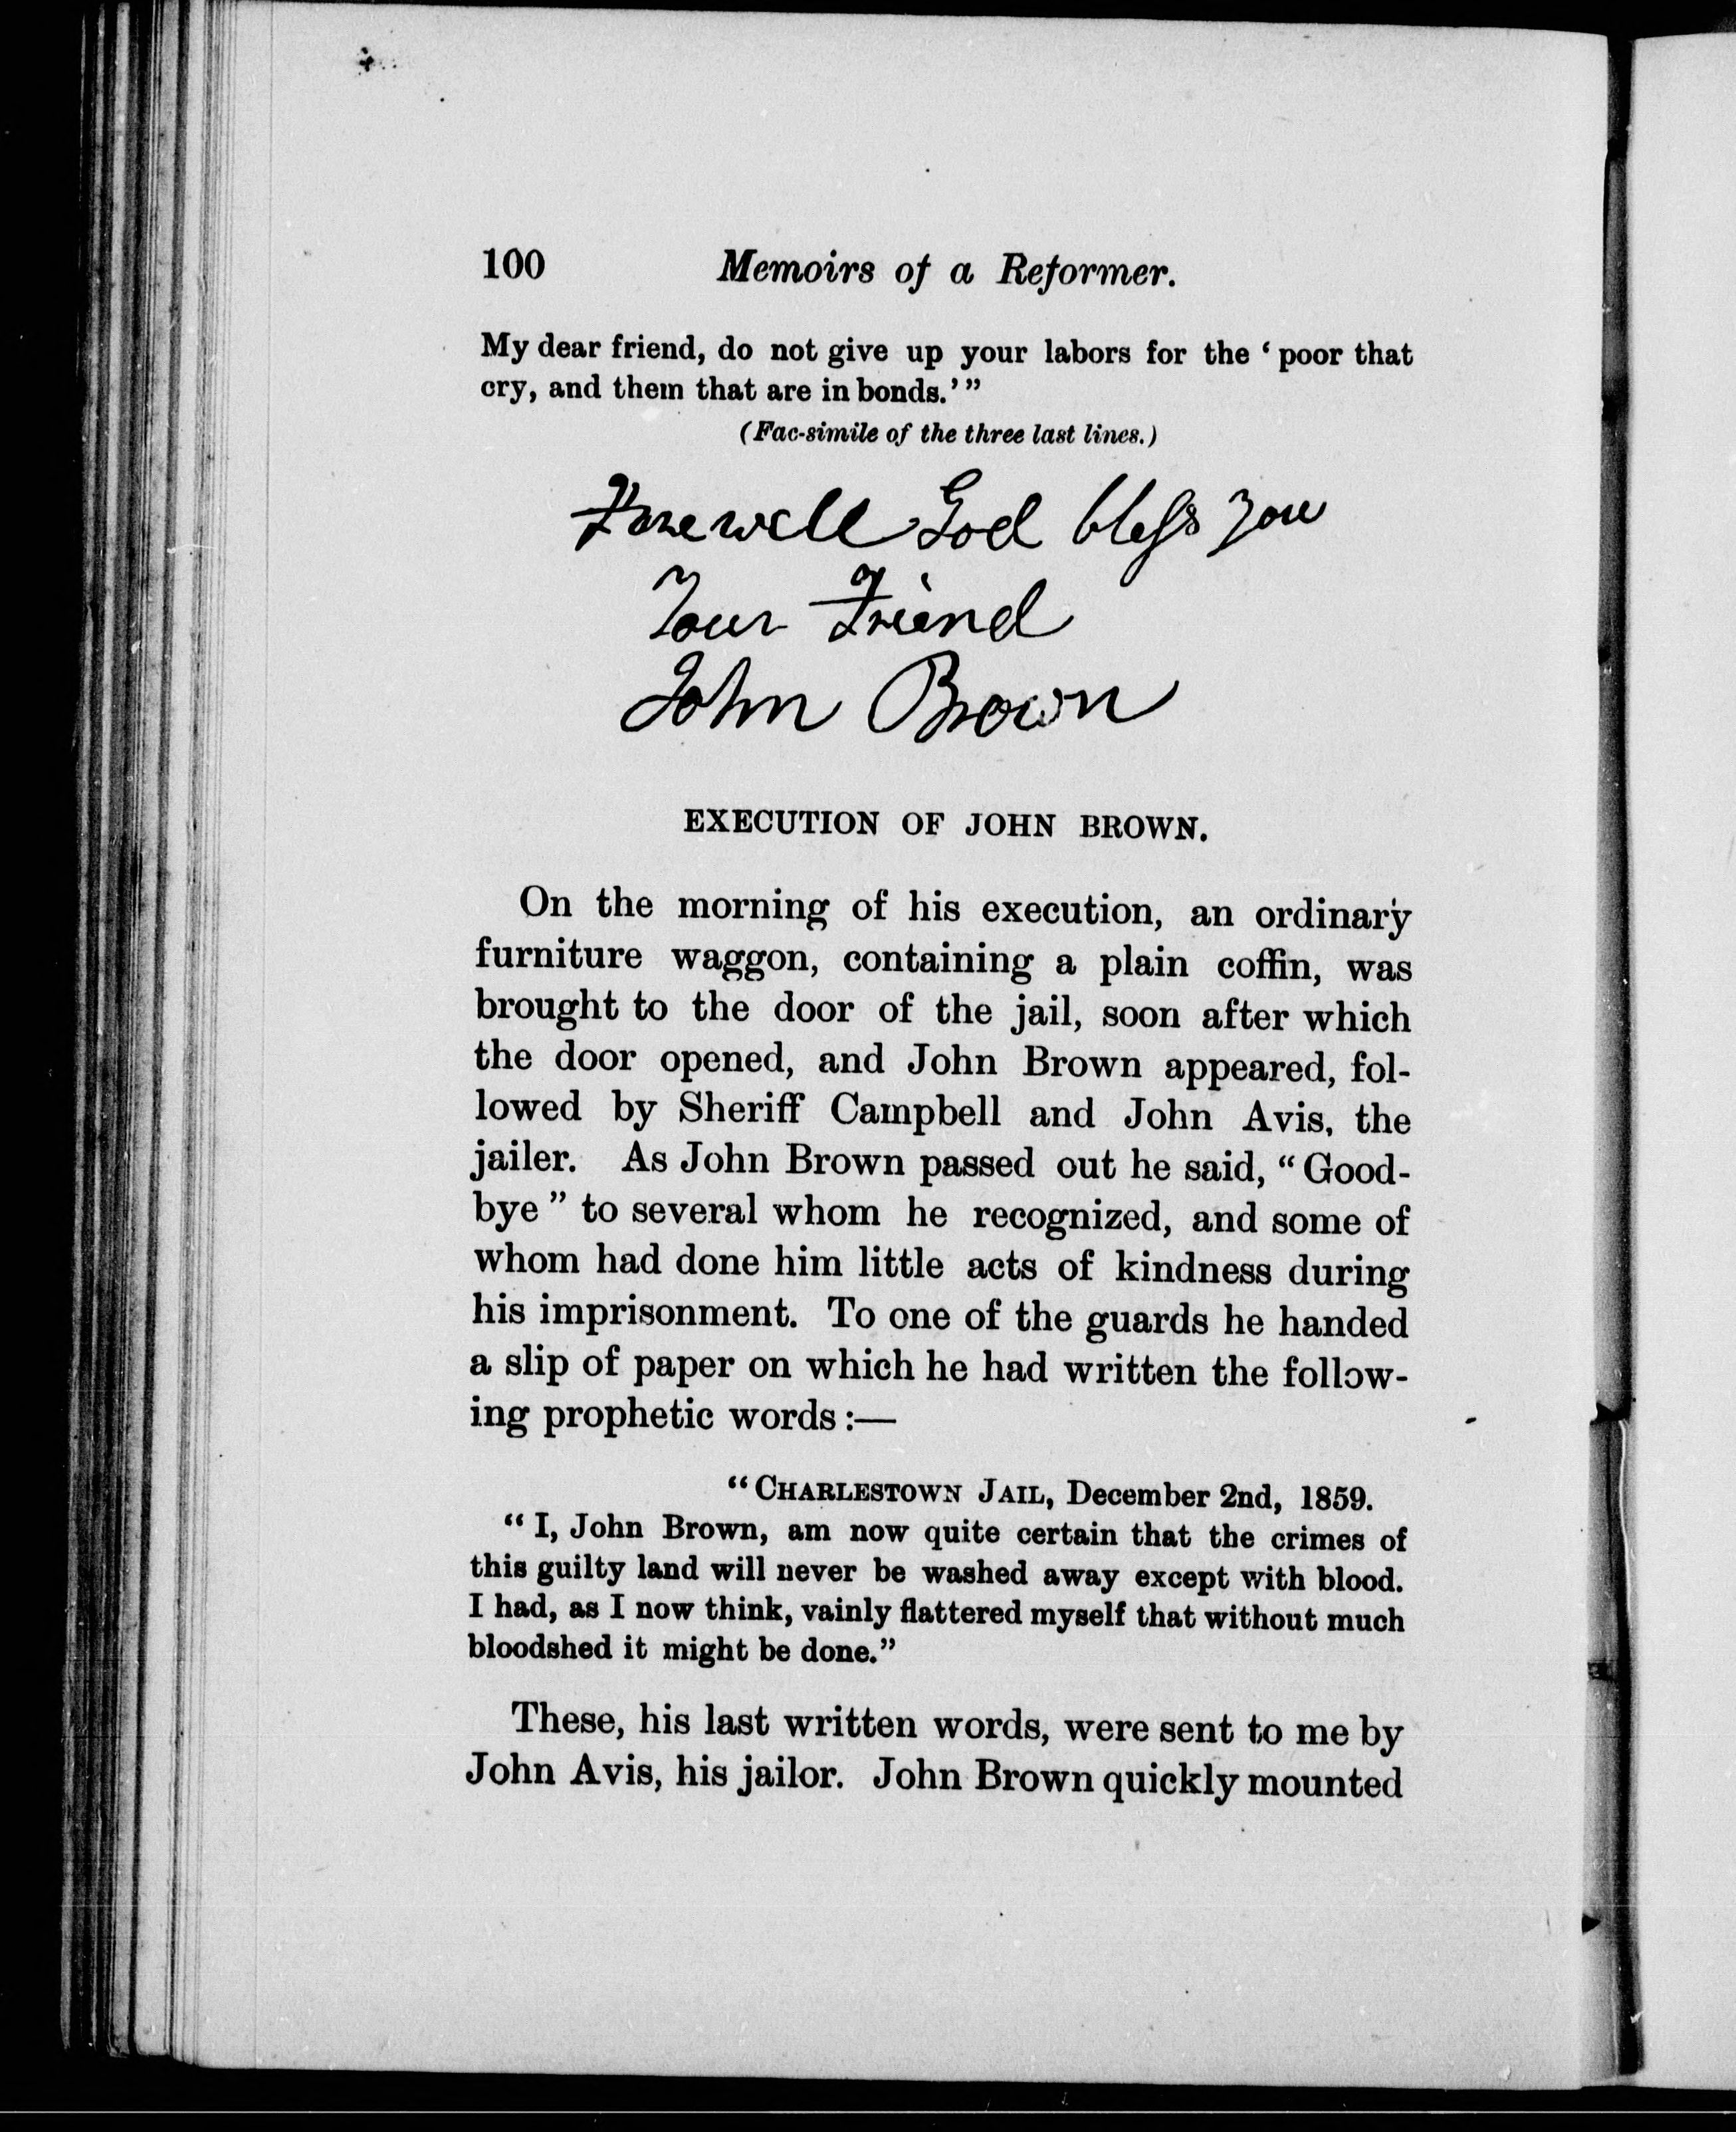 100 Memoirs of a Reformer.
My dear friend, do not give up your labors for the ‘poor that
cry, and them that are in bonds.’”
(Fac-simile of the three last lines.)
Farewell God bless you
Your Friend
John Brown
EXECUTION OF JOHN BROWN.
On the morning of his execution, an ordinary
furniture waggon, containing a plain coffin, was
brought to the door of the jail, soon after which
the door opened, and John Brown appeared, fol-
lowed by Sheriff Campbell and John Avis, the
jailer. As John Brown passed out he said, “Good-
bye” to several whom he recognized, and some of
whom had done him little acts of kindness during
his imprisonment. To one of the guards he handed
a slip of paper on which he had written the follow-
ing prophetic words:—
“CHARLESTOWN JAIL, December 2nd, 1859.
“I, John Brown, am now quite certain that the crimes of
this guilty land will never be washed away except with blood.
I had, as I now think, vainly flattered myself that without much
bloodshed it might be done.”
These, his last written words, were sent to me by
John Avis, his jailor. John Brown quickly mounted